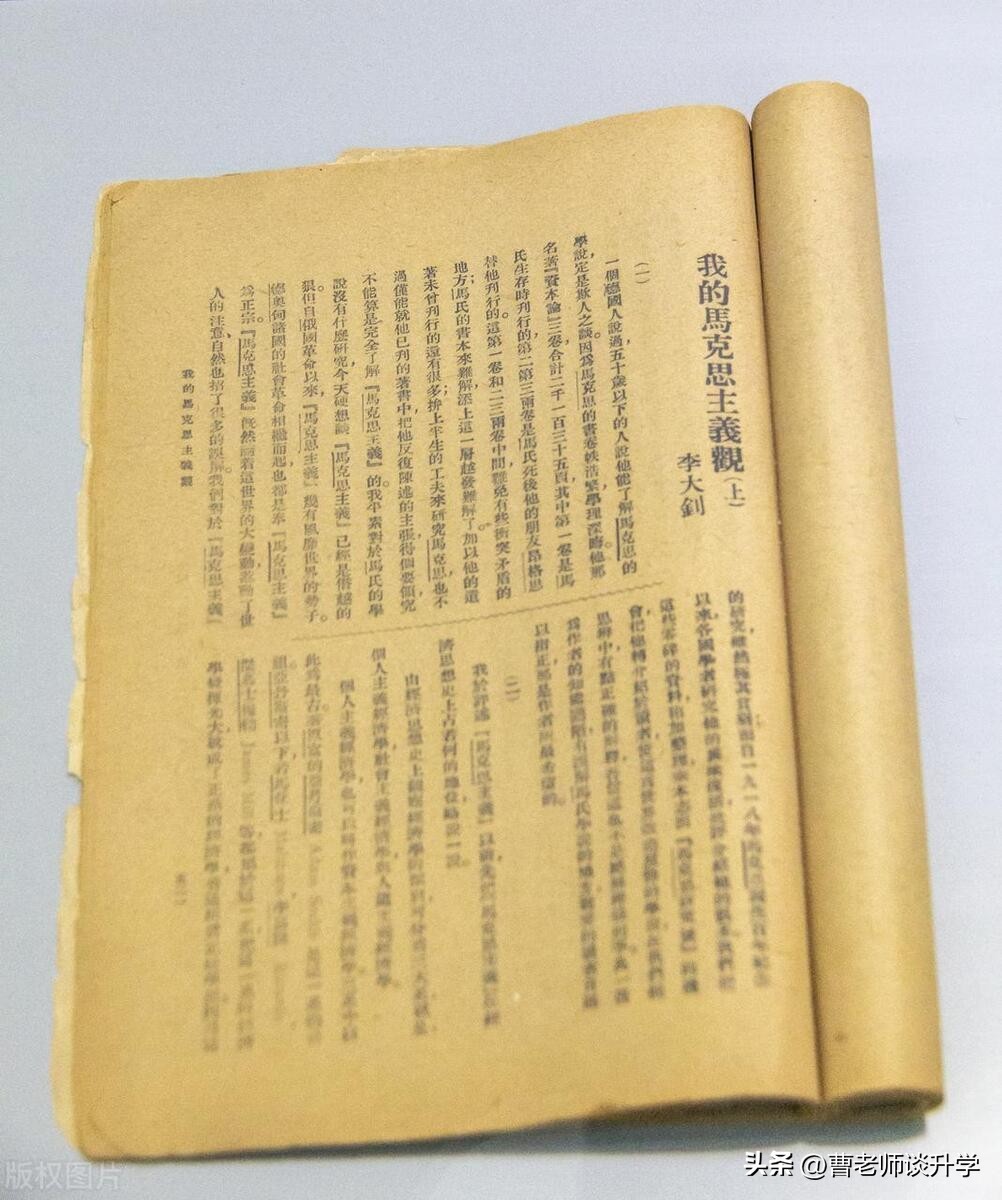 我的馬克思主義觀(上)
李大釗
(一)
一個德國人說過五十歲以下的人說他能了解馬克思的
學說定是欺人之談因爲馬克思的書卷帙浩繁學理深晦他那
名著『資本論』三卷合計二千一百三十五頁其中第一卷是馬
氏生存時刊行的第二第三兩卷是馬氏死後他的朋友昂格思
替他刊行的。這第一卷和二三兩卷中間難免有些衝突矛盾的
地方;馬氏的書本來難解添上這一層越發難解了加以他的遺
著未曾刊行的還有很多,拚上半生的工夫來研究馬克思也不
過僅能就他已刊的著書中把他反復陳述的主張得個要領究
不能算是完全了解『馬克思主義』的。我平素對於馬氏的學
說沒有什麽研究今天硬想談『馬克思主義』已經是僭越的
狠。但自俄國革命以來,『馬克思主義』幾有風靡世界的勢子。
德奧匈諸國的社會革命相繼而起也都是奉『馬克思主義』
爲正宗。『馬克思主義』既然隨着這世界的大變動惹動了世
人的注意,自然也招了很多的誤解。我們對於『馬克思主義』
的研究
以來各國學者研究他的
這些零碎的資料稍加整理
會把他轉介紹於讀者使這爲世界改造原動的學說在我們的
思辨中有點正確的解釋
爲作者的知能
以指正那是作者所最希望的。
(二)
我於評述『馬克思主義』以前先把馬克思主義在經
濟思想史上占若何的地位略說一說。
由經濟思想史上觀察經濟學的派別可分爲三大系就是
個人主義經濟學社會主義經濟學與人道主義經濟學。
個人主義經濟學也可以叫作資本主義經濟學三系中以
此爲最古
Adam Smith
James Mill
我的馬克思主義觀
版权图片
头条 @曹老师谈升学